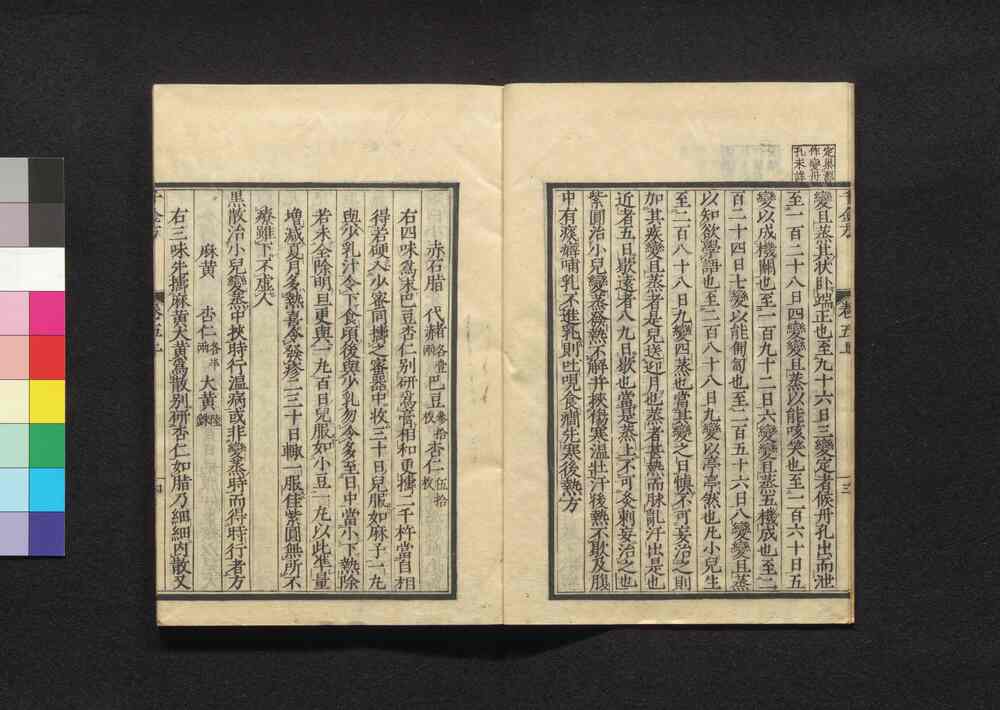 變且蒸其状臥端正也至九十六日三變定者候丹孔出而泄
至一百二十八日四變變且蒸以能咳笑也至一百六十日五
變以成機關也至一百九十二日六變變且蒸五機成也至二
百二十四日七變以能匍匐也至二百五十六日八變變且蒸
以知欲學語也至二百八十八日九變以亭亭然也凡小兒生
至二百八十八日九變四蒸也當其變之日慎不可妄治之則
加其疾變且蒸者是兒送迎月也蒸者甚熱而脉亂汗出是也
近者五日歇遠者八九日歇也當是蒸上不可灸刺妄治之也
紫圓治小兒變蒸發熱不解并挾傷寒温壮汗後熱不歇及腹
中有痰癖哺乳不進乳則吐哯食癇先寒後熱方
赤石脂 代赭各壹兩 巴豆叁拾枚 杏仁伍拾枚
右四味爲末巴豆杏仁别研爲膏相和更擣二千杵當自相
得若硬入少蜜同擣之蜜器中收三十日兒服如麻子一丸
與少乳汁令下食頃後與少乳勿令多至日中當小下熱除
若未全除明旦更與一丸百日兒服如小豆一丸以此准量
増減夏月多熱喜令發疹二三十日輙一服佳紫圓無所不
療雖下不虚人
黒散治小兒變蒸中挾時行温病或非變蒸時而得時行者方
麻黄 杏仁各半兩 大黄陸銖
右三味先擣麻黄大黄爲散别研杏仁如脂乃細細内散又